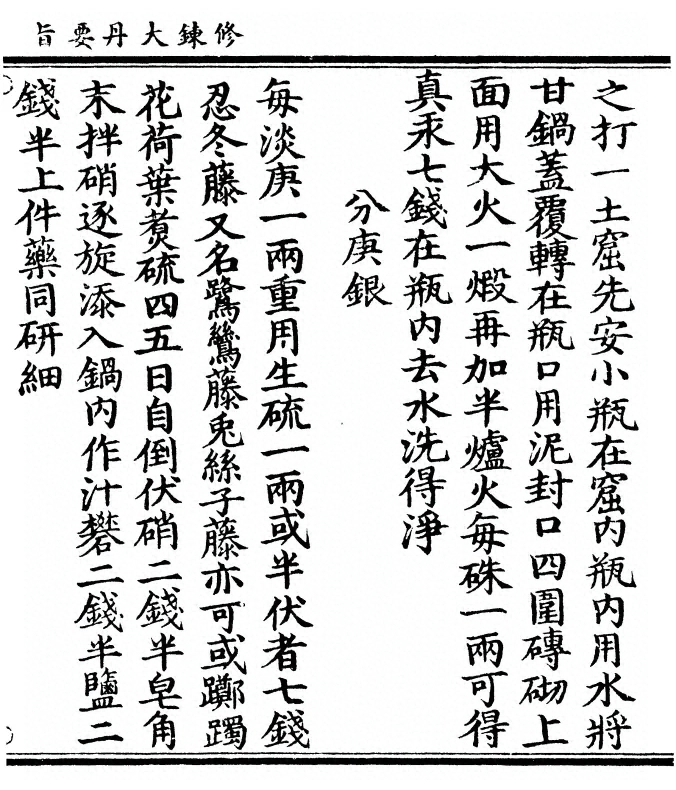 修鍊大丹要旨
之打一土窟先安小瓶在窟内瓶内用水將
甘鍋蓋覆轉在瓶口用泥封口四圍磚砌上
面用大火一煅再加半爐火每硃一兩可得
真汞七錢在瓶内去水洗得淨
分庚銀
每淡庚一兩重用生硫一兩或半伏者七錢
忍冬藤又名鷺鷥藤兎絲子藤亦可或躑躅
花荷葉煑硫四五日自倒伏硝二錢半皂角
末拌硝逐旋添入鍋内作汁礬二錢半鹽二
錢半上件藥同研細